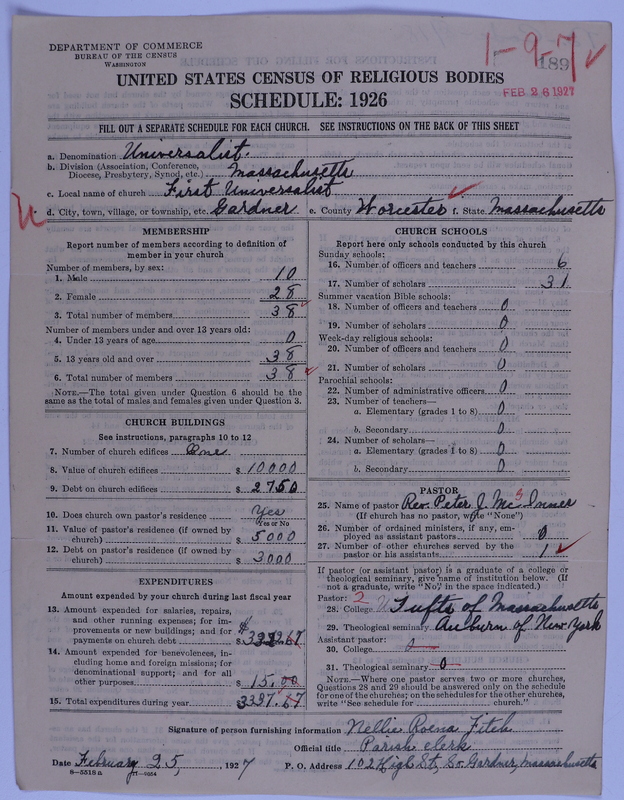 DEPARTMENT OF COMMERCE
BUREAU OF THE CENSUS
WASHINGTON
1-9-7 ✓
189
FEB 26 1927
UNITED STATES CENSUS OF RELIGIOUS BODIES
SCHEDULE: 1926
FILL OUT A SEPARATE SCHEDULE FOR EACH CHURCH. SEE INSTRUCTIONS ON THE BACK OF THIS SHEET
a. Denomination Universalist.
b. Division (Association, Conference,
Diocese, Presbytery, Synod, etc.) Massachusetts
c. Local name of church First Universalist
d. City, town, village, or township, etc. Gardner e. County Worcester f. State Massachusetts
MEMBERSHIP
Report number of members according to definition of
member in your church
Number of members, by sex:
1. Male 10
2. Female 28
3. Total number of members 38
Number of members under and over 13 years old:
4. Under 13 years of age 0
5. 13 years old and over 38
6. Total number of members 38 ✓
NOTE.—The total given under Question 6 should be the
same as the total of males and females given under Question 3.
CHURCH BUILDINGS
See instructions, paragraphs 10 to 12
7. Number of church edifices One
8. Value of church edifices $ 10000
9. Debt on church edifices $ 2750
10. Does church own pastor's residence Yes
Yes or No
11. Value of pastor's residence (if owned by
church) $ 5000
12. Debt on pastor's residence (if owned by
church) $ 3000
EXPENDITURES
Amount expended by your church during last fiscal year
13. Amount expended for salaries, repairs,
and other running expenses; for im-
provements or new buildings; and for
payments on church debt $
14. Amount expended for benevolences, in-
cluding home and foreign missions; for
denominational support; and for all
other purposes $ 15.00
15. Total expenditures during year $ 3337.67
CHURCH SCHOOLS
Report here only schools conducted by this church
Sunday schools:
16. Number of officers and teachers 6
17. Number of scholars 31
Summer vacation Bible schools:
18. Number of officers and teachers 0
19. Number of scholars 0
Week-day religious schools:
20. Number of officers and teachers 0
21. Number of scholars 0
Parochial schools:
22. Number of administrative officers 0
23. Number of teachers—
a. Elementary (grades 1 to 8) 0
b. Secondary 0
24. Number of scholars—
a. Elementary (grades 1 to 8) 0
b. Secondary 0
PASTOR
25. Name of pastor Rev. Peter J. McInnes
(If church has no pastor, write "None")
26. Number of ordained ministers, if any, em-
ployed as assistant pastors 0
27. Number of other churches served by the
pastor or his assistants 1 ✓
If pastor (or assistant pastor) is a graduate of a college or
theological seminary, give name of institution below. (If
not a graduate, write "No," in the space indicated.)
Pastor: 2
28. College Tufts of Massachusetts
29. Theological seminary Auburn of New York
Assistant pastor:
30. College 0
31. Theological seminary 0
NOTE.—Where one pastor serves two or more churches,
Questions 28 and 29 should be answered only on the schedule
for one of the churches; on the schedules for the other churches,
write "See schedule for church."
Signature of person furnishing information Nellie Roena Fitch
Official title Parish clerk
Date February 25, 1927 P. O. Address 102 High St, So. Gardner, Massachusetts
8—5518a